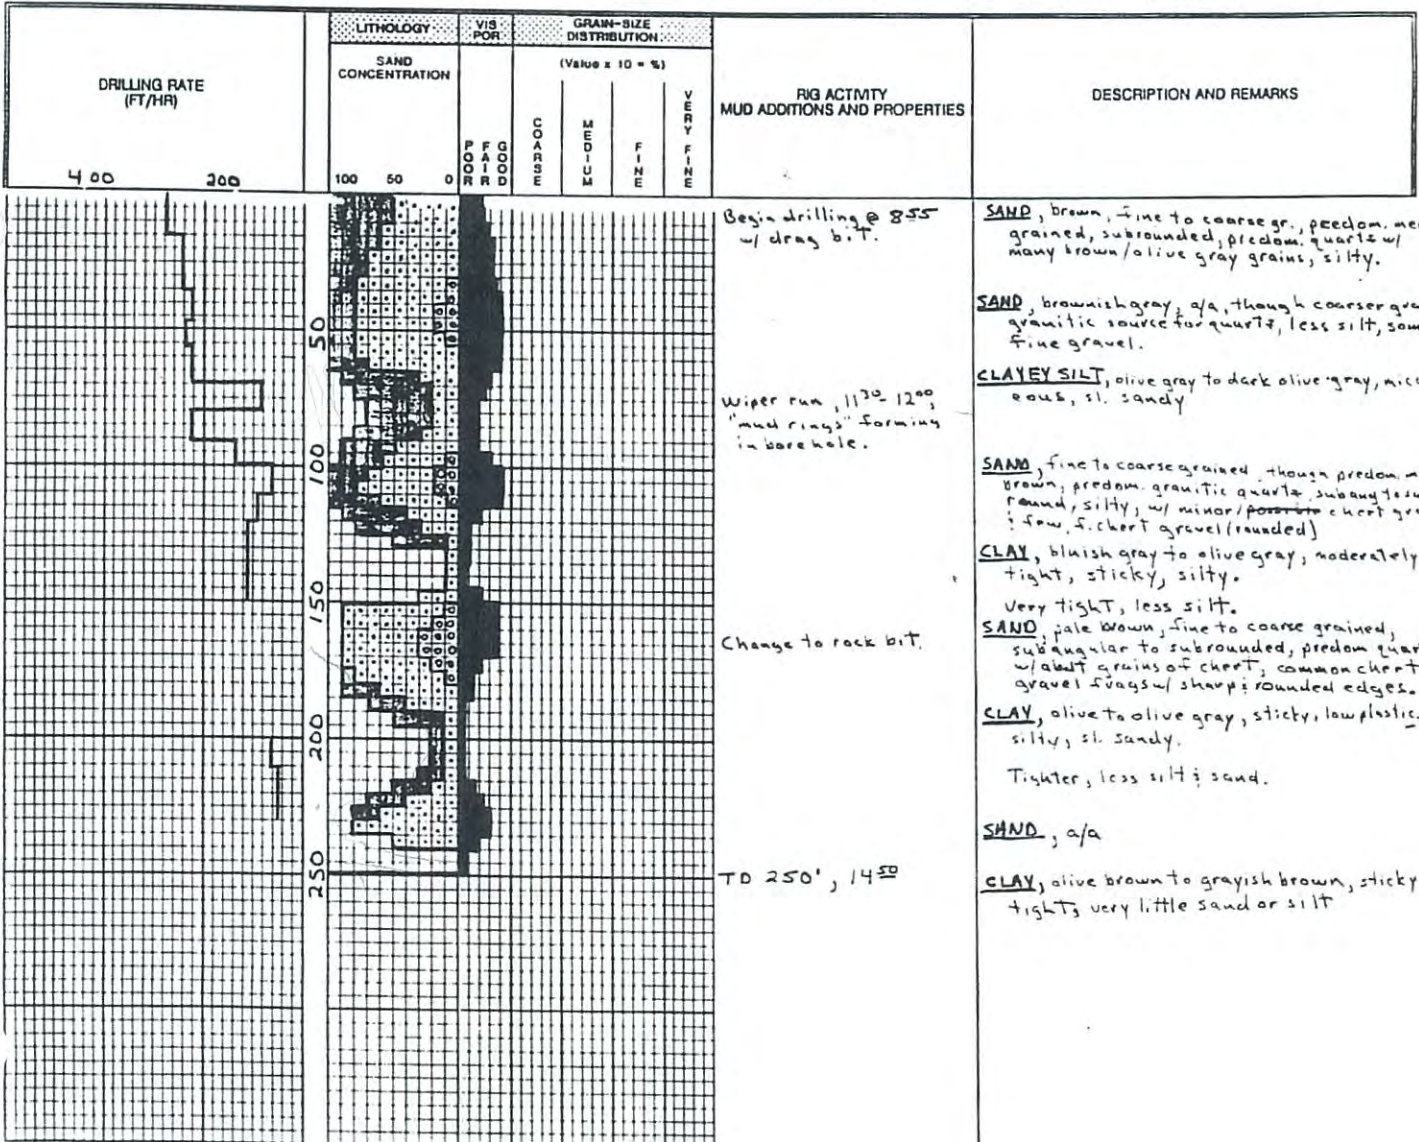 LITHOLOGY
VIS POR
GRAIN-SIZE DISTRIBUTION
DRILLING RATE
(FT/HR)
SAND
CONCENTRATION
(Value x 10 = %)
POOR
FAIR
GOOD
COARSE
MEDIUM
FINE
VERY FINE
RIG ACTIVITY
MUD ADDITIONS AND PROPERTIES
DESCRIPTION AND REMARKS
400 200
100 50 0
50
100
150
200
250
Begin drilling @ 8 55
w/ drag bit.
Wiper run, 11 30 - 12 00,
"mud rings" forming
in bore hole.
Change to rock bit.
TD 250', 14 50
SAND, brown, fine to coarse gr., predom. me
grained, subrounded, predom. quartz w/
many brown/olive gray grains, silty.
SAND, brownish gray, a/a, though coarser gra
granitic source for quartz, less silt, som
fine gravel.
CLAYEY SILT, olive gray to dark olive gray, mica
eous, sl. sandy
SAND, fine to coarse grained, though predom. m
brown, predom. granitic quartz, subang to su
round, silty, w/ minor/possible chert gra
& few f. chert gravel (rounded)
CLAY, bluish gray to olive gray, moderately
tight, sticky, silty.
Very tight, less silt.
SAND, pale brown, fine to coarse grained,
subangular to subrounded, predom quar
w/ abdt grains of chert, common chert
gravel frags w/ sharp & rounded edges.
CLAY, olive to olive gray, sticky, low plastic.
silty, sl. sandy.
Tighter, less silt & sand.
SAND, a/a
CLAY, olive brown to grayish brown, sticky
tight, very little sand or silt